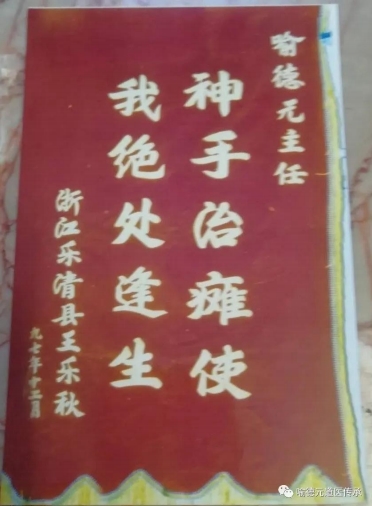 喻德元主任
神手治瘫使
我绝处逢生
浙江乐清县王乐秋
九七年十二月
喻德元道医传承